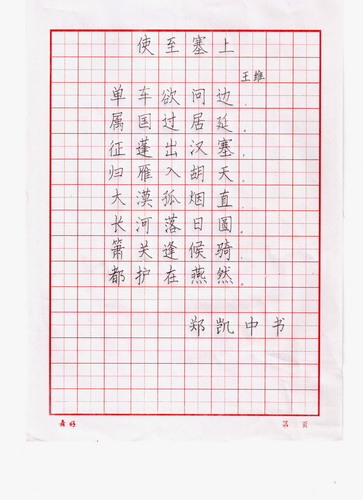 使至塞上
王维
单车欲问边.
属国过居延.
征蓬出汉塞,
归雁入胡天.
大漠孤烟直
长河落日圆.
箫关逢候骑.
都护在燕然.
郑凯中书
第 页